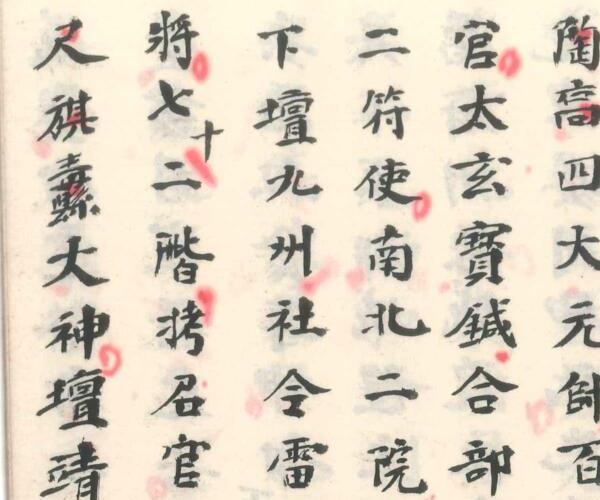 陶高四大元帥百
官太玄寶鍼合部
二符使南北二院
下壇九州社令雷
將七十二階拷召官
尺旗纛大神壇靖